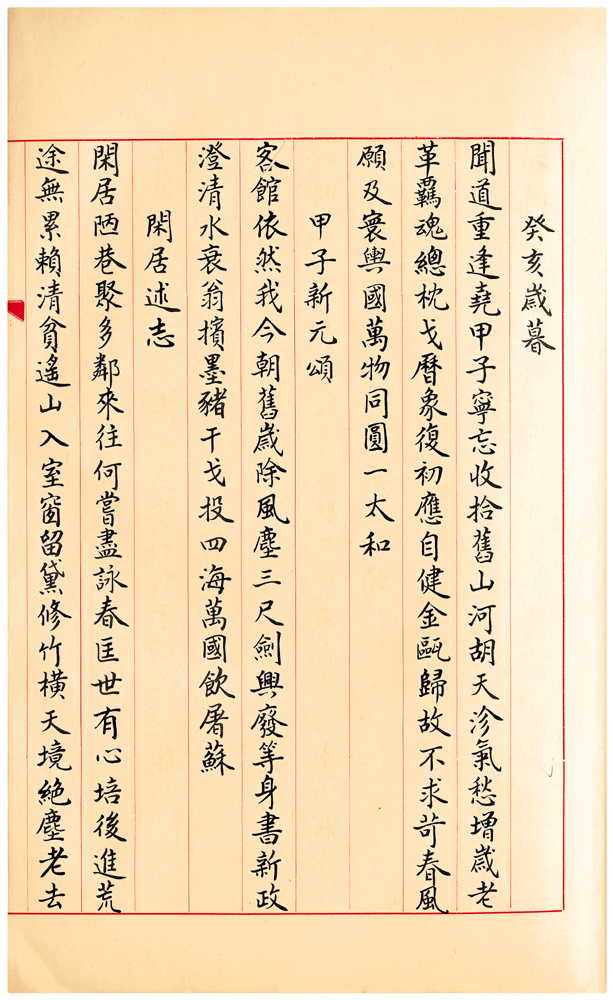 癸亥歲暮
聞道重逢堯甲子寧忘收拾舊山河胡天沴氣愁增歲老
革羈魂總枕戈曆象復初應自健金甌歸故不求苛春風
願及寰輿國萬物同圓一太和
甲子新元頌
客館依然我今朝舊歲除風塵三尺劍興廢等身書新政
澄清水衰翁擯墨豬干戈投四海萬國飲屠蘇
閑居述志
閑居陋巷聚多鄰來往何嘗盡詠春匡世有心培後進荒
途無累賴清貧遙山入室窗留黛修竹橫天境絕塵老去